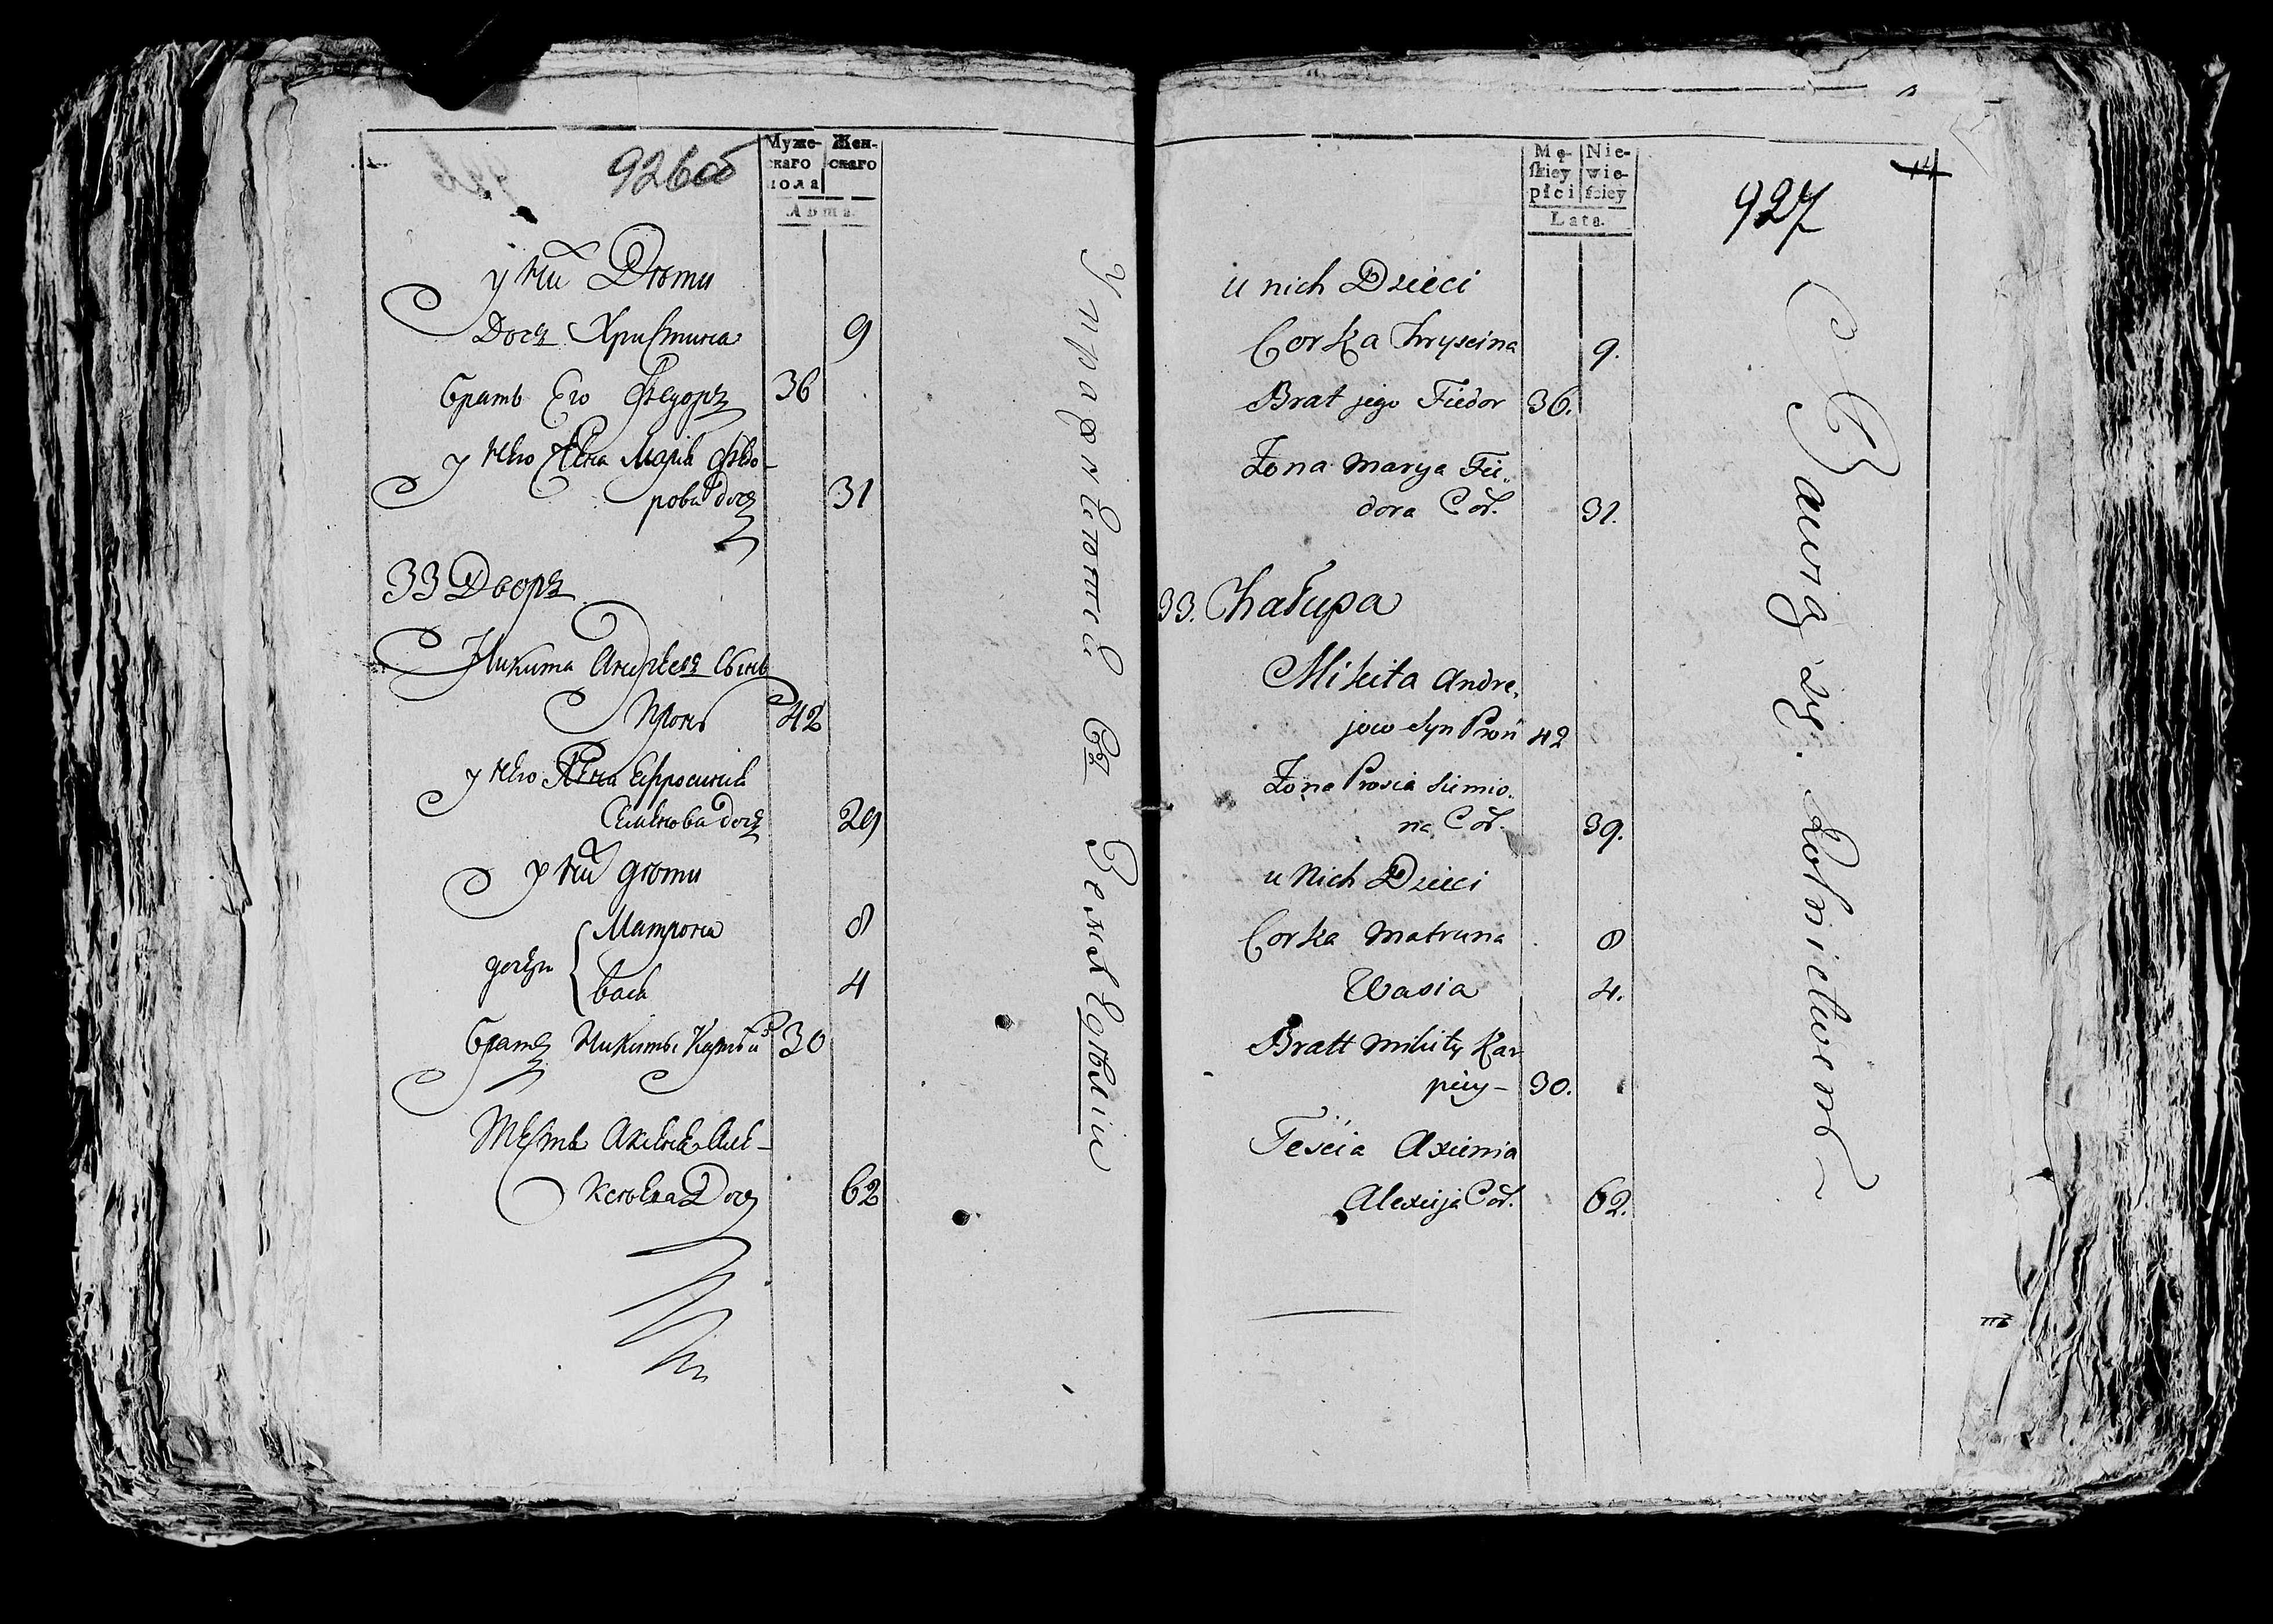 926об
Муже-
скаго
пола
Жен-
скаго
Лѣта.
у них Дѣти
Дочь Христина 9
братъ Его Федоръ 36
у него Жена Марія Федо-
рова дочь 31
33 Дворъ
Никита Андреевъ Сынъ
Пронь 42
у него Жена Ефросинія
Семенова дочь 29
у них дѣти
дочери Матрона 8
Вася 4
братъ Никиты 30
Аксинья Але-
ксѣева Дочь 62
Упражняется Въ Земледѣліи
Mę-
skiey
płci
Nie-
wie-
ściey
Lata.
927
u nich Dzieci
Corka Hryscina 9.
Brat jego Fiedor 36.
Żona Marya Fie-
dora Cór. 31.
33. Chałupa
Mikita Andre-
jow Syn Proń 42
Żona Prosia Siemio-
na Cór. 39.
u Nich Dzieci
Corka Matruna 8
Wasia 4.
Bratt Mikity Kar
piey - 30.
Teścia Axienia
Alexieja Cór. 62.
Bawią się Rolnictwem